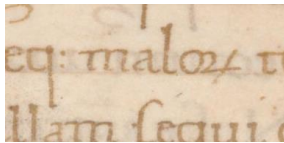 eq: maloꝝ t
llam sequi